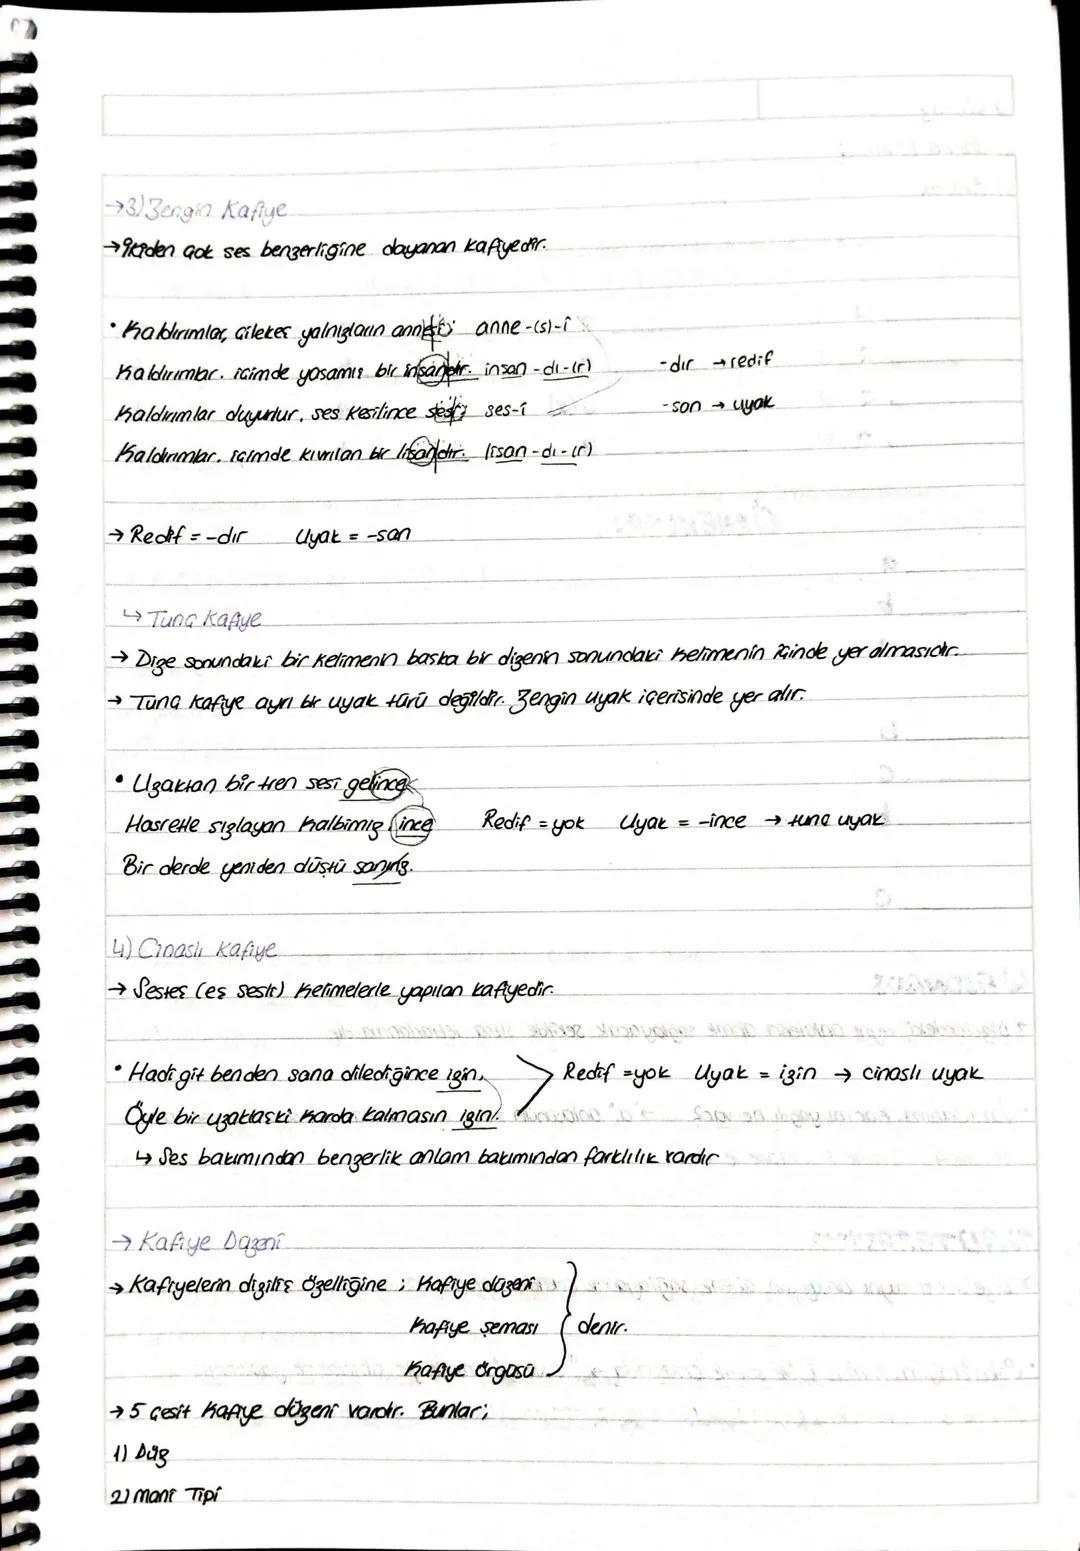 →3) Zengin Kafiye
→ İkiden çok ses benzerliğine dayanan kafiyedir.
• Kaldırımlar, çilekeş yalnızların annesi; anne-(s)-i
Kaldırımlar. içimde yaşamış bir insandır. insan-dı-(r) -dır → redif
Kaldırımlar duyulur, ses kesilince sesi; ses-i -san → uyak
Kaldırımlar. içimde kıvrılan bir lisandır. lisan-dı-(r)
→ Redif = -dır Uyak = -san
↳ Tunç Kafiye
→ Dize sonundaki bir kelimenin başka bir dizenin sonundaki kelimenin içinde yer almasıdır.
→ Tunç kafiye ayrı bir uyak türü değildir. Zengin uyak içerisinde yer alır.
• Uzaktan bir tren sesi gelince
Hasretle sızlayan kalbimiz ince Redif = yok Uyak = -ince → tunç uyak
Bir derde yeniden düştü sanırız.
4) Cinaslı Kafiye
→ Sesteş (eş sesli) kelimelerle yapılan kafiyedir.
• Hadi git benden sana dilediğince izin, Redif =yok Uyak = izin → cinaslı uyak
Öyle bir uzaklaşki karda kalmasın izin!
↳ Ses bakımından benzerlik anlam bakımından farklılık vardır
→ Kafiye Düzeni
→ Kafiyelerin diziliş özelliğine ; Kafiye düzeni
Kafiye şeması denir.
Kafiye örgüsü
→ 5 çeşit kafiye düzeni vardır. Bunlar;
1) Düz
2) Mani Tipi